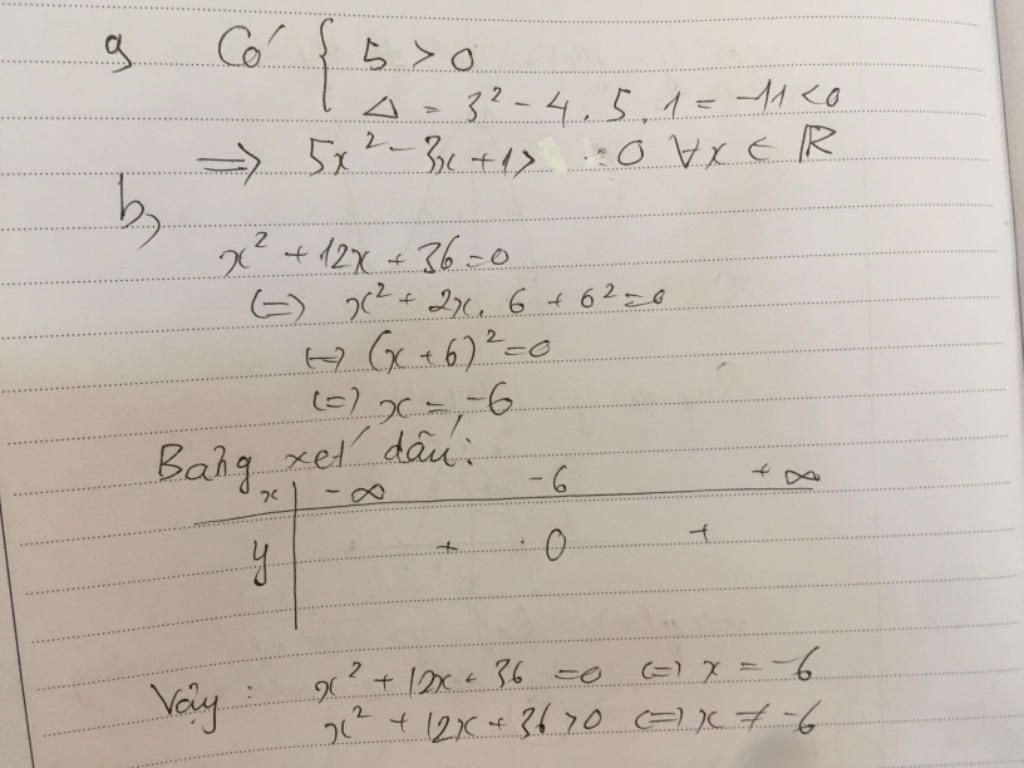 a Có { 5 > 0
Δ = 3² - 4.5.1 = -11 < 0
⇒ 5x² - 3x + 1 > 0 ∀x ∈ ℝ
b,
x² + 12x + 36 = 0
(=) x² + 2x.6 + 6² = 0
(=) (x + 6)² = 0
(=) x = -6
Bảng xét dấu:
x -∞ -6 +∞
y + 0 +
Vậy : x² + 12x + 36 = 0 (=) x = -6
x² + 12x + 36 > 0 (=) x ≠ -6